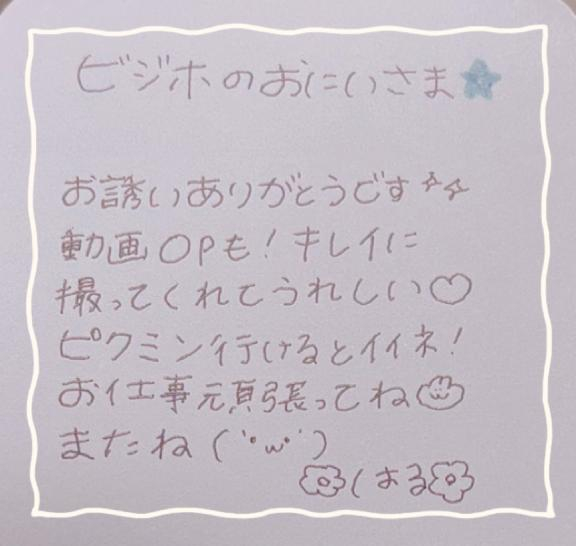 ビジホのおにいさま
お誘いありがとうです
動画OPも!キレイに
撮ってくれてうれしい♡
ピクミン行けるとイイネ!
お仕事頑張ってね
またね(˙ω˙)
はる